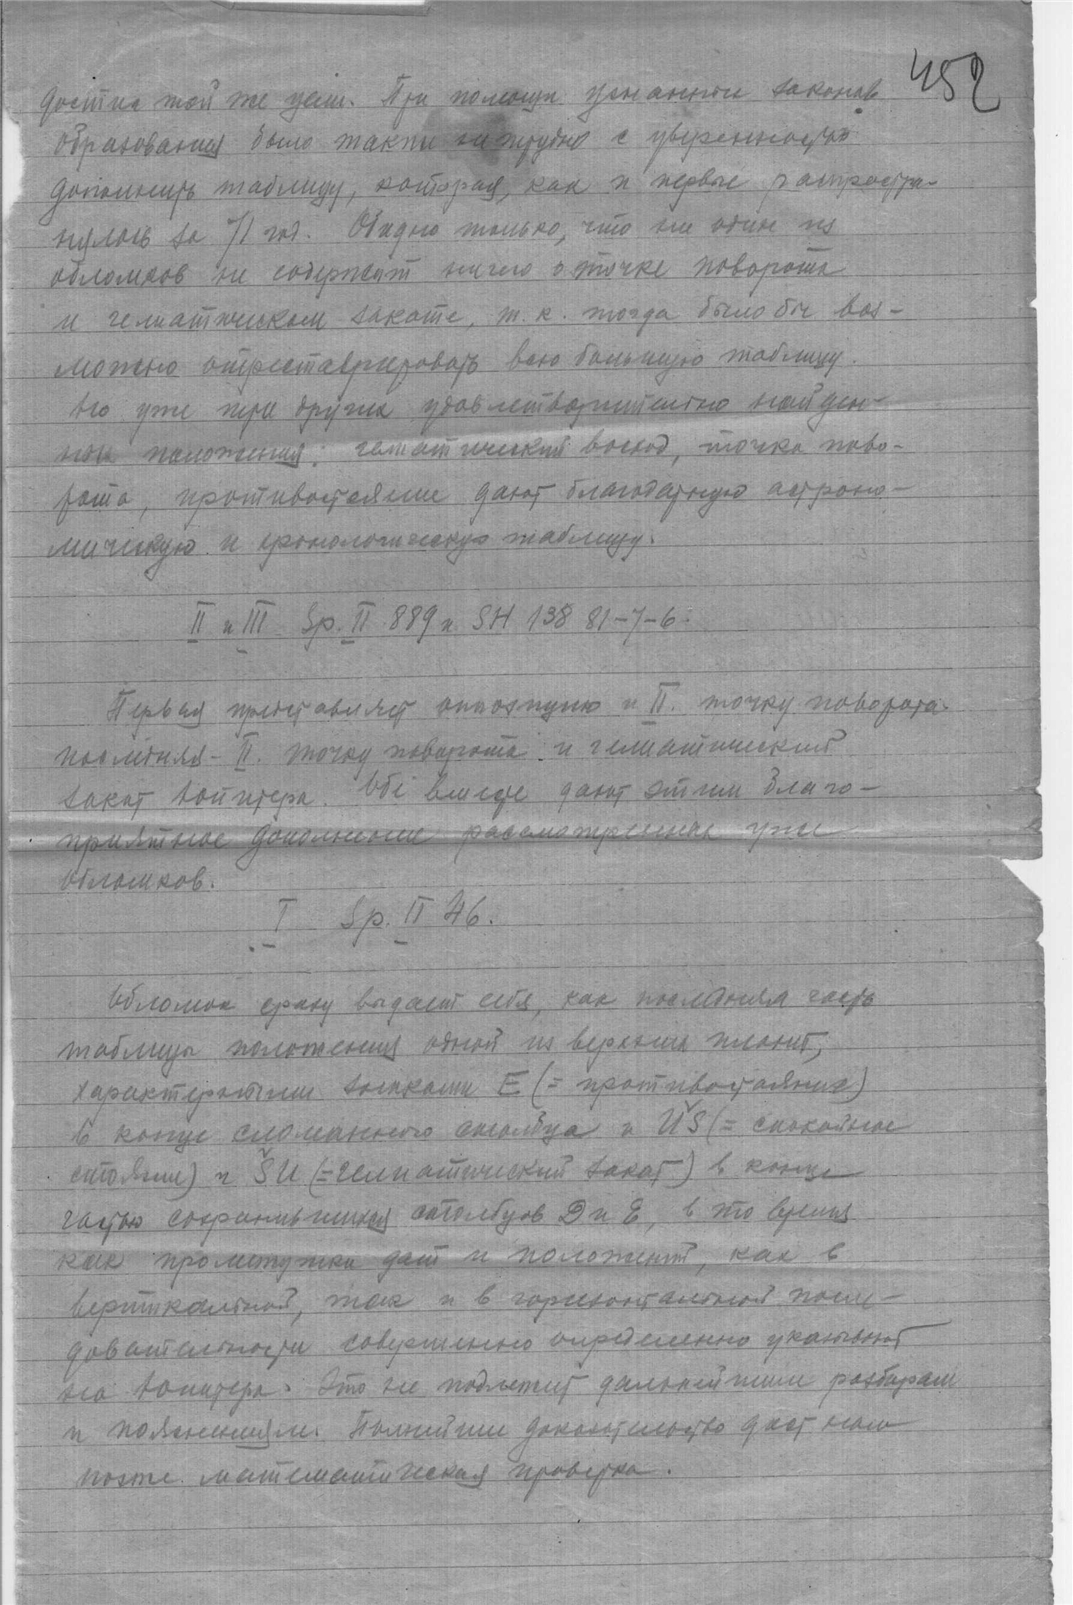 452
достиг той же цели. При помощи узнанных законов
образования было также не трудно с уверенностью
дополнить таблицу, которая, как и первые распростра-
нулась за 71 год. Обидно только, что ни один из
обломков не содержит ничего о точке поворота
и гелиатическом закате, т. к. тогда было бы воз-
можно отреставрировать всю большую таблицу.
Но уже три других удовлетворительно найден-
ных положения: гелиатический восход, точка пово-
рота, противостояние дают благодатную астроно-
мическую и хронологическую таблицу.
II и III Sp. II 889 и SH 138 81-7-6.
Первая представляет оппозицию и II. точку поворота
последняя - II. точку поворота и гелиатический
закат Юпитера. Обе вместе дают этим благо-
приятное дополнение рассмотренных уже
обломков.
I Sp. II 46.
Обломок сразу выдает себя, как последняя часть
таблицы положения одной из верхних планет,
характерными знаками E (= противостояние)
в конце сломанного столбца и UŠ (= спокойное
стояние) и ŠU (= гелиатический закат) в конце
частью сохранившихся столбцов D и E, в то время
как промежутки дат и положений, как в
вертикальной, так и в горизонтальной после-
довательности совершенно определенно указывают
на Юпитера. Это не подлежит дальнейшим разборам
и пояснениям. Полнейшее доказательство даст нам
позже математическая проверка.